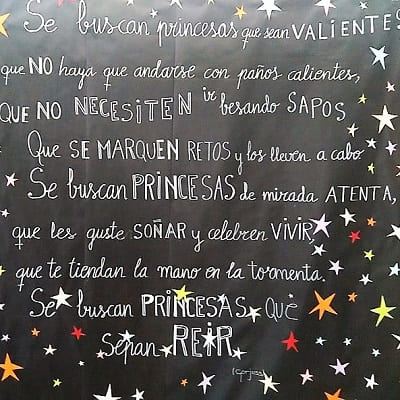 Se buscan princesas que sean VALIENTES
que NO haya que andarse con paños calientes,
QUE NO NECESITEN ir besando SAPOS
Que SE MARQUEN RETOS y los lleven a cabo
Se buscan PRINCESAS de mirada ATENTA,
que les guste SOÑAR y celebren VIVIR,
que te tiendan la mano en la tormenta.
Se buscan PRINCESAS QUE
Sepan REIR